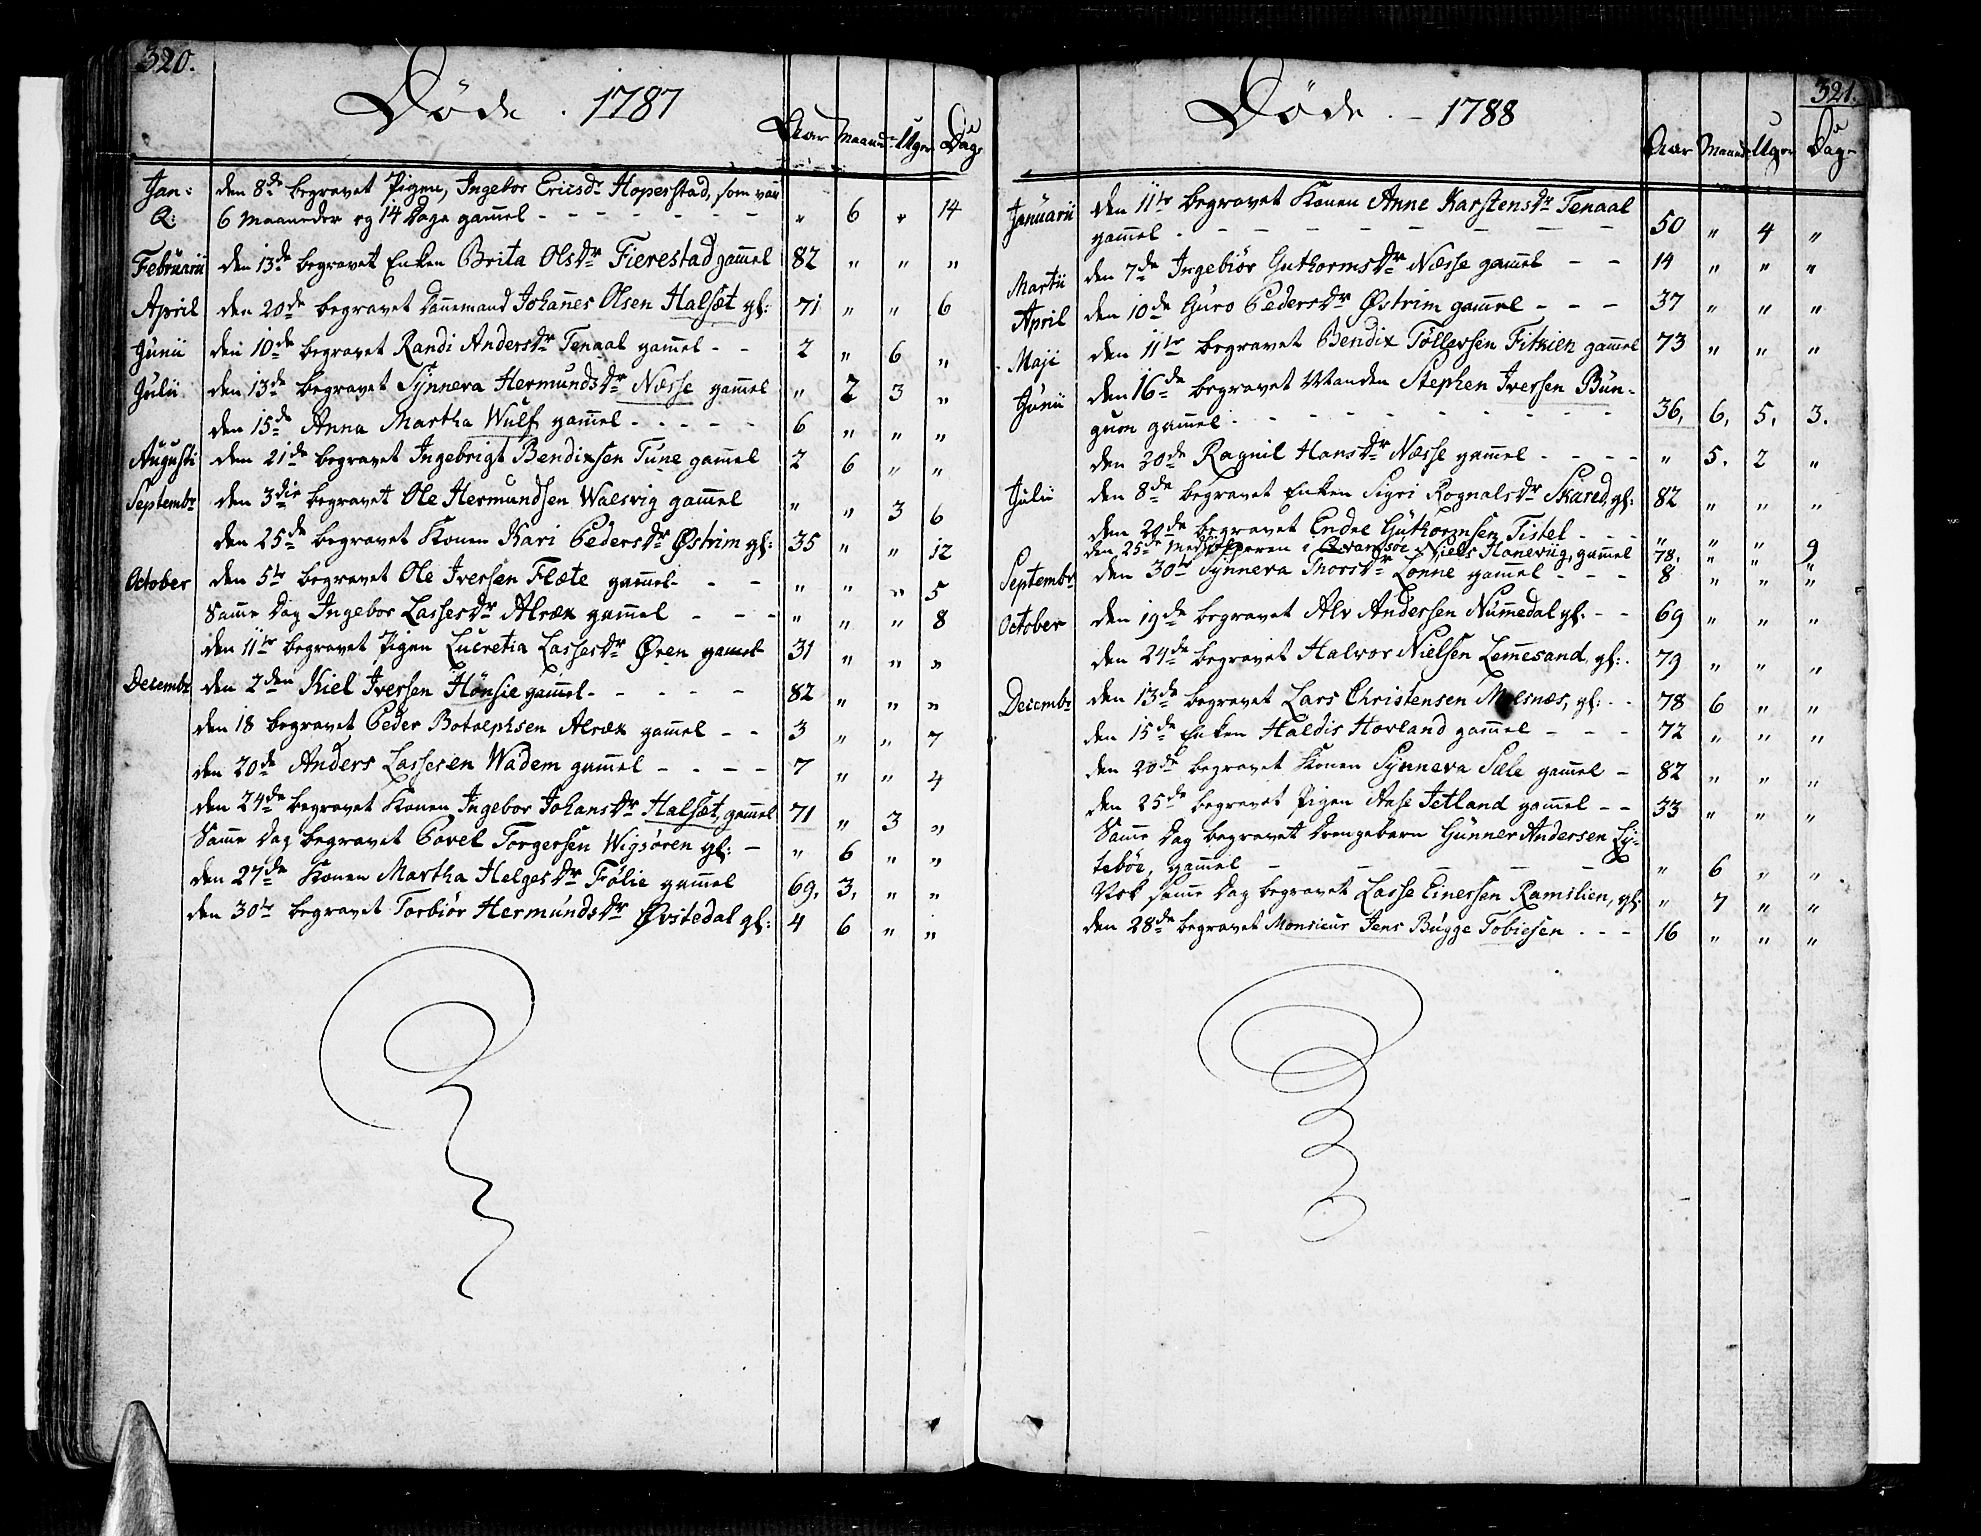 320.
Döde . 1787
Aar Maaned: Uger Dage
Jan: den 8de begravet Pigen, Ingebor Ericsdr Hoperstad, som var
Q: 6 Maaneder og 14 Dage gam̄el - - - - - - - " 6 " 14
Februarii den 13de begravet Enken Brita Olsdr Fierestad gam̄el 82 " " "
April den 20de begravet Dan̄emand Johan̄es Olsen Halsæt gl: 71 " " 6
Junii den 10de begravet Randi Andersdr Tenaal gam̄el - - 2 " 6 "
Julii den 13de begravet Synneva Hermundsdr Næsse gam̄el " 2 3 "
den 15de Anna Martha Wulf gam̄el - - - - - 6 " " "
Augusti den 21de begravet Ingebrigt Bendixsen Tune gam̄el 2 6 " "
Septembr den 3die begravet Ole Hermundsen Walsvig gam̄el " " 3 6
den 25de begravet Konen Kari Pedersdr Østrim gl: 35 " " 12
October den 5te begravet Ole Iversen Flæte gam̄el - - - " " " 5
Sam̄e Dag Ingebor Lassesdr Alræk gam̄el - - - " " " 8
den 11te begravet Pigen Lucretia Lassesdr Øren gam̄el 31 " " "
Decembr den 2den Kiel Iversen Hönsie gam̄el - - - - - 82 " " "
den 18 begravet Peder Botolphsen Alræk gam̄el - - 3 " " 7
den 20de Anders Lassesen Wadem gam̄el - - - - 7 " " 4
den 24de begravet Konen Ingebor Johansdr Halsæt, gam̄el 71 " 3 "
Sam̄e Dag begravet Povel Torgersen Wigsören gl: - " 6 " "
den 27de Konen Martha Helgesdr Følie gam̄el 69, 3, " "
den 30te begravet Torbiör Hermundsdr Øvstedal gl: 4 6 " "
321.
Döde . - 1788
Aar Maaned: Uger Dage
Januarii den 11te begravet Konen Anne Karstensdr Tenaal
gam̄el - - - - - - - - - - 50 " 4 "
Martii den 7de Ingebiör Guthormsdr Næsse gam̄el - - 14 " " "
April den 10de Guro Pedersdr Østrim gam̄el - - - 37 " " "
Maji den 11te begravet Bendix Töllevsen Fitkien gam̄el 73 " " "
Junii den 16de begravet Manden Stephen Iversen Bün-
gum gam̄el - - - - - - - - - - 36, 6, 5, 3.
den 20de Ragnil Hansdr Næsse gam̄el - - - - " 5. 2 "
Julii den 8de begravet Enken Sigri Rognalsdr Skared, gl: 82 " " "
den 20de begravet Endre Guthormsen Tistel - - - " " " 9
den 25de Niels Hanevig, gam̄el 78. " " "
Septembr den 30te Synneva Thorsdr Lönne gam̄el - - - 8 " " "
October den 19de begravet Alv Andersen Num̄edal gl: - - 69 " " "
den 24de begravet Halvor Nielsen Lem̄esand, gl: . 79 " " "
Decembr den 13de begravet Lars Christensen Molsnæs, gl: - - 78 6 " "
den 15de Enken Haldis Hovland gam̄el - - - 72 " " "
den 20de begravet Konen Synneva Sæle gam̄el - 82 " " "
den 25de begravet Pigen Aase Jetland gam̄el - - 33 " " "
Sam̄e Dag begravet Drengebarn Gunner Andersen Ly-
teböe, gam̄el - - - - - - - " 6 " "
Nok sam̄e Dag begravet Lasse Einersen Ramslien, gl: " 7 " "
den 28de begravet Monsieur Jens Bugge Tobiesen - - - 16 " " "